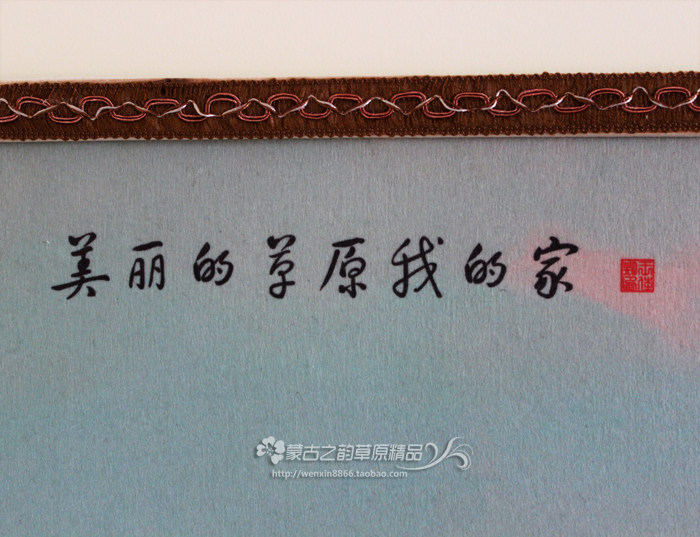 美丽的草原我的家
蒙古之韵草原精品
http://wenxin8866.taobao.com